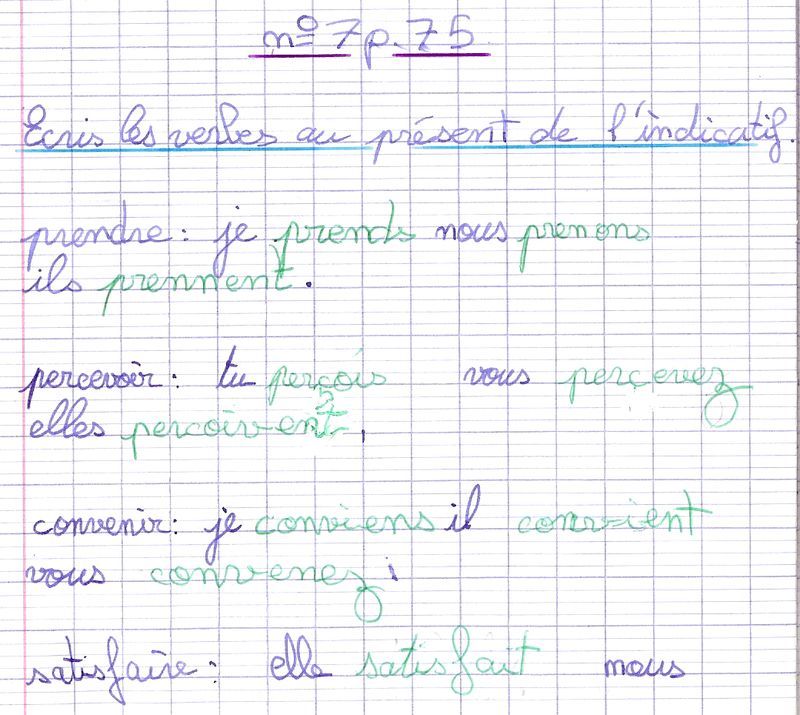 nº 7 p. 75
Ecris les verbes au présent de l'indicatif.
prendre : je prends nous prenons
ils prennent.
percevoir : tu perçois vous percevez
elles perçoivent,
convenir : je conviens il convient
vous convenez ;
satisfaire : elle satisfait nous